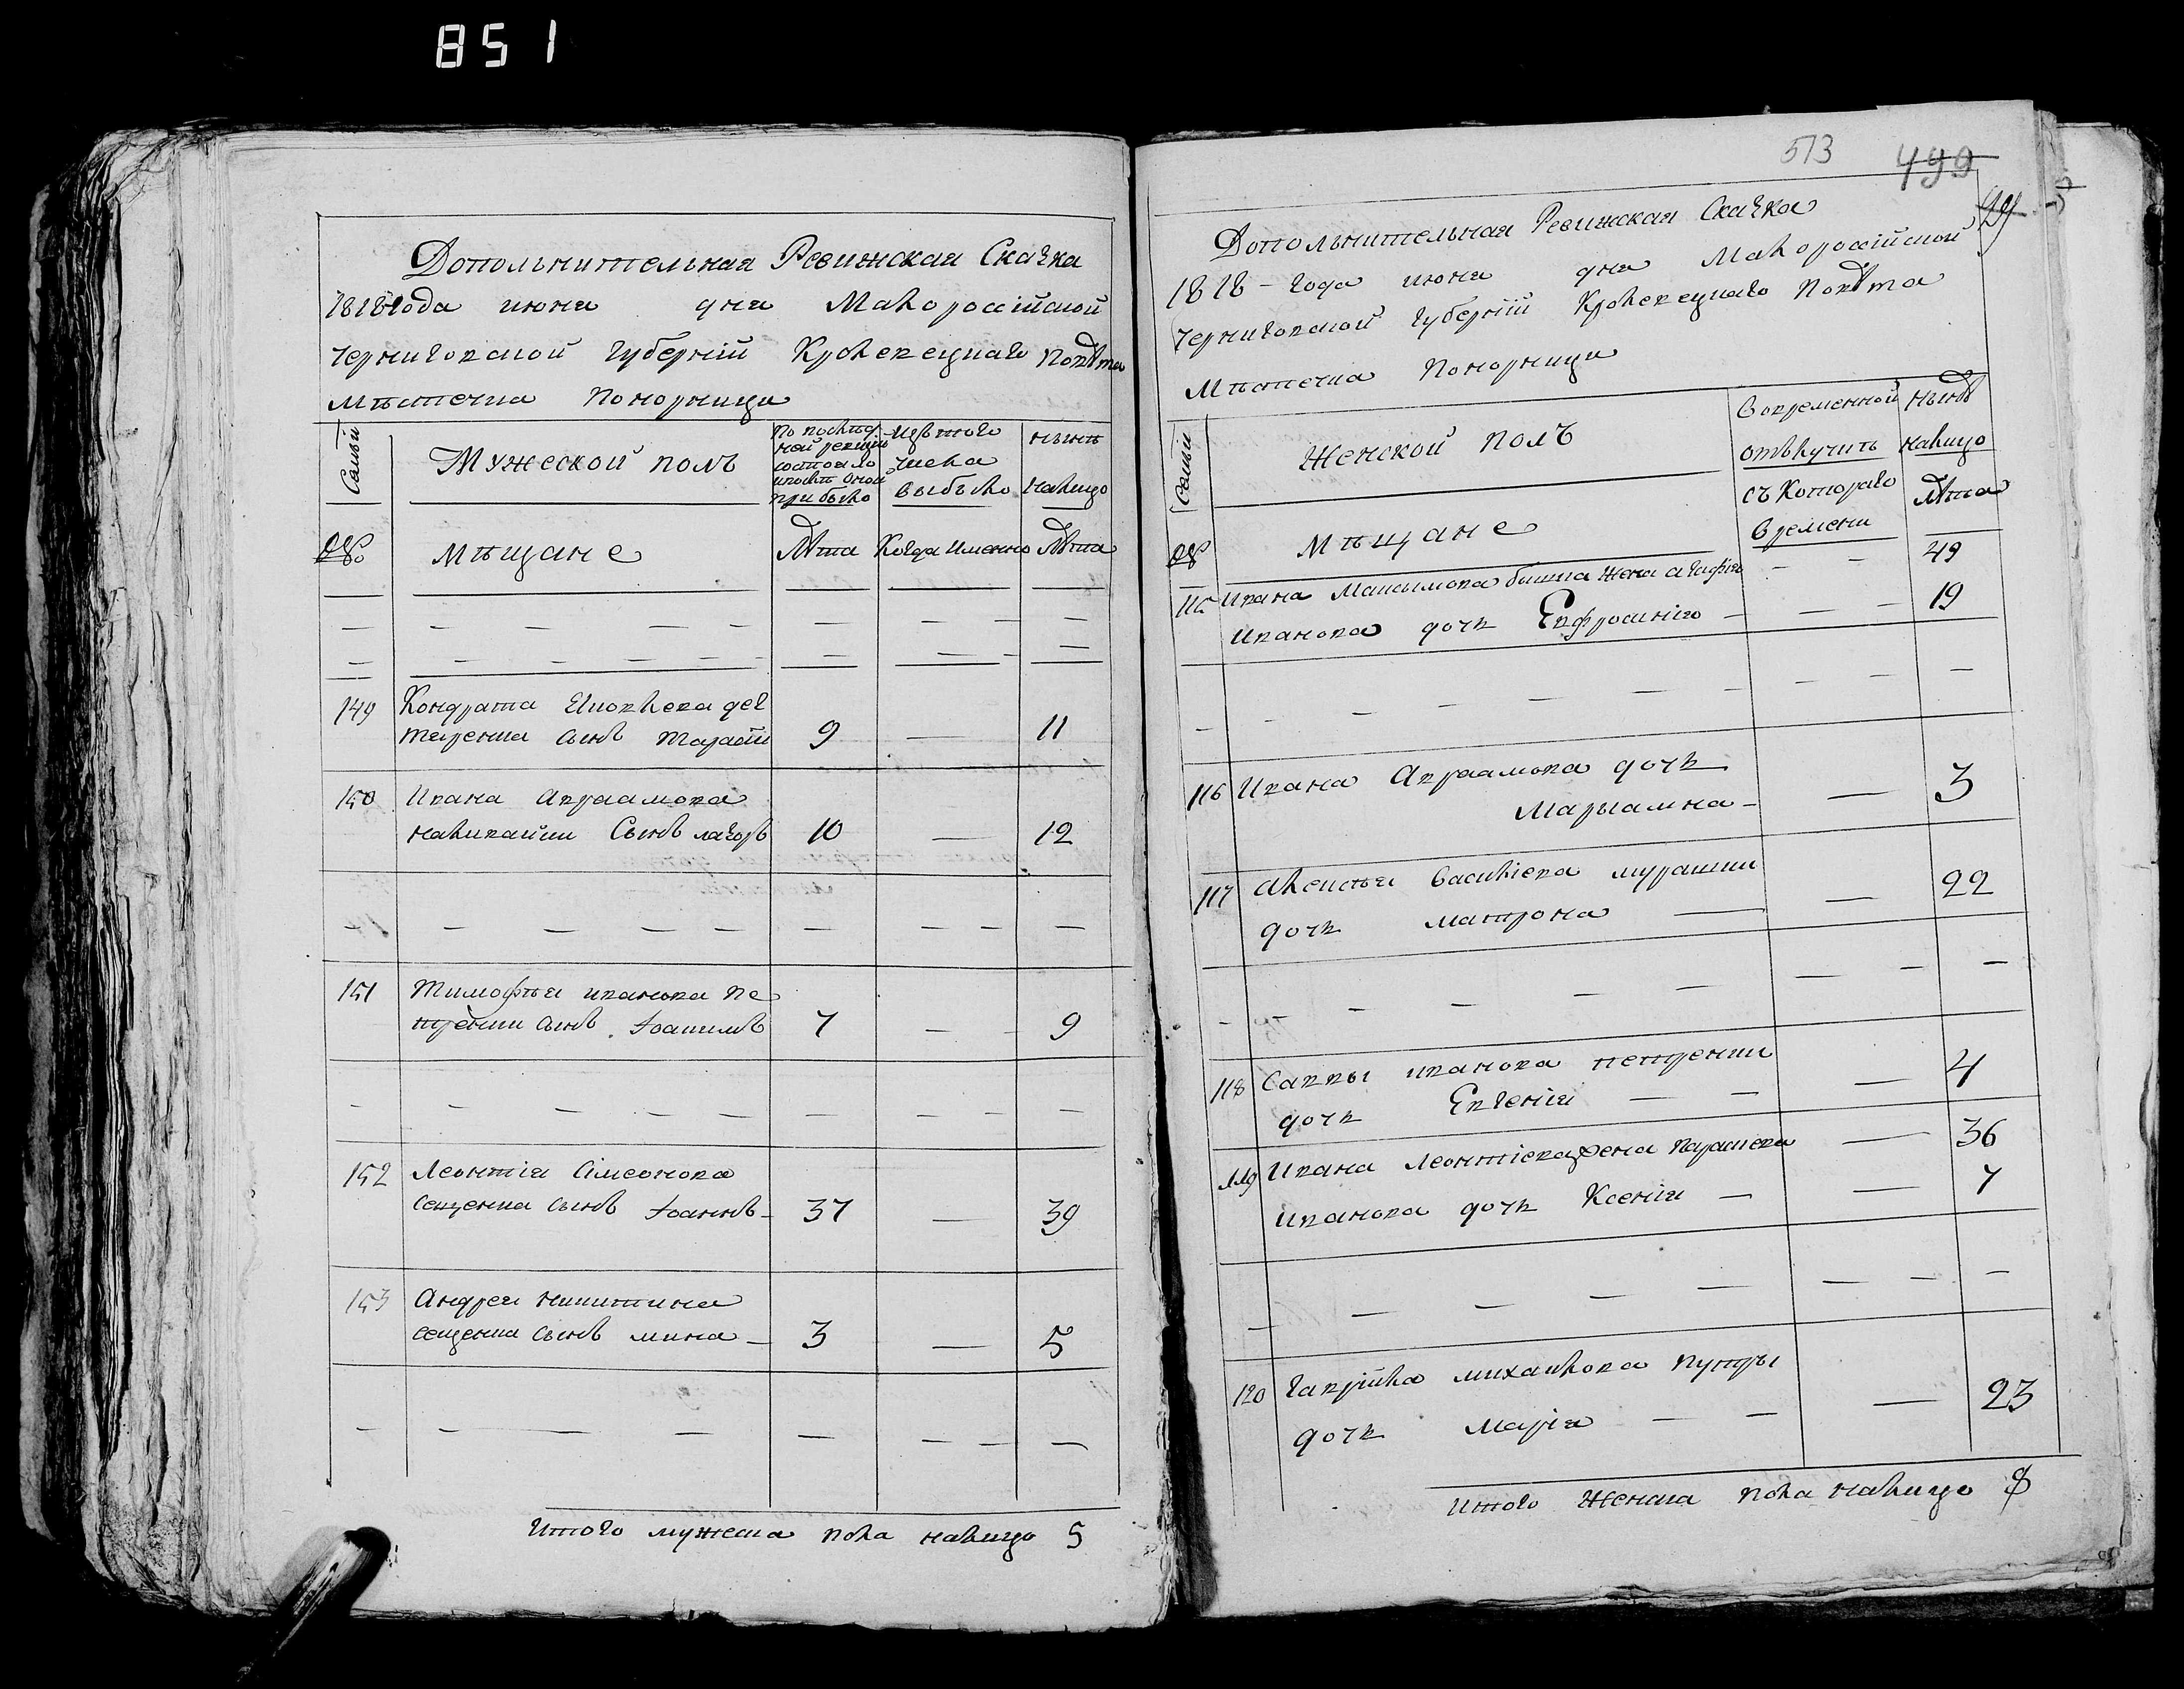 851
Дополнительная Ревижская Сказка
1818 года июня дня Малороссійской
Черниговской губерніи Кролевецкаго повѣта
Мѣстечка Понорницы
Семьи
Мужеской полъ
По послѣд
ней ревизіи
состояло
и послѣ оной
прибыло
Изъ того
числа
выбыло
нынѣ
налицо
№
мѣщане
Лѣта
Когда именно
Лѣта
149 Кондрата
сынъ Тарасій 9 — 11
150 Ивана Авраамова
сынъ 10 — 12
151 Тимофѣя иванова пе
тренки сынъ Іоакимъ 7 — 9
152 Леонтія Сімеонова
сынъ Іоаннъ 37 — 39
153 Андрея никитина
сынъ мина 3 — 5
Итого мужеска пола налицо 5
513 499
Дополнительная Ревижская Сказка
1818 года июня дня Малороссійской
Черниговской губерніи Кролевецкаго повѣта
Мѣстечка Понорницы
Семьи
Женской полъ
Во временной
отлучить
съ котораго
времени
нынѣ
налицо
Лѣта
№
мѣщане
115 Ивана Максимова жена агафія — 49
иванова дочь Евфросинія — 19
116 Ивана Авраамова дочь
Маріамна — 3
117 Алексѣя Василіева мурашки
дочь матрона — 22
118 Саввы иванова петренки
дочь Евгенія — 4
119 Ивана леонтіева жена параскева — 36
иванова дочь Ксенія — 7
120 гавріила михайлова
дочь марія — 23
Итого женска пола налицо 8